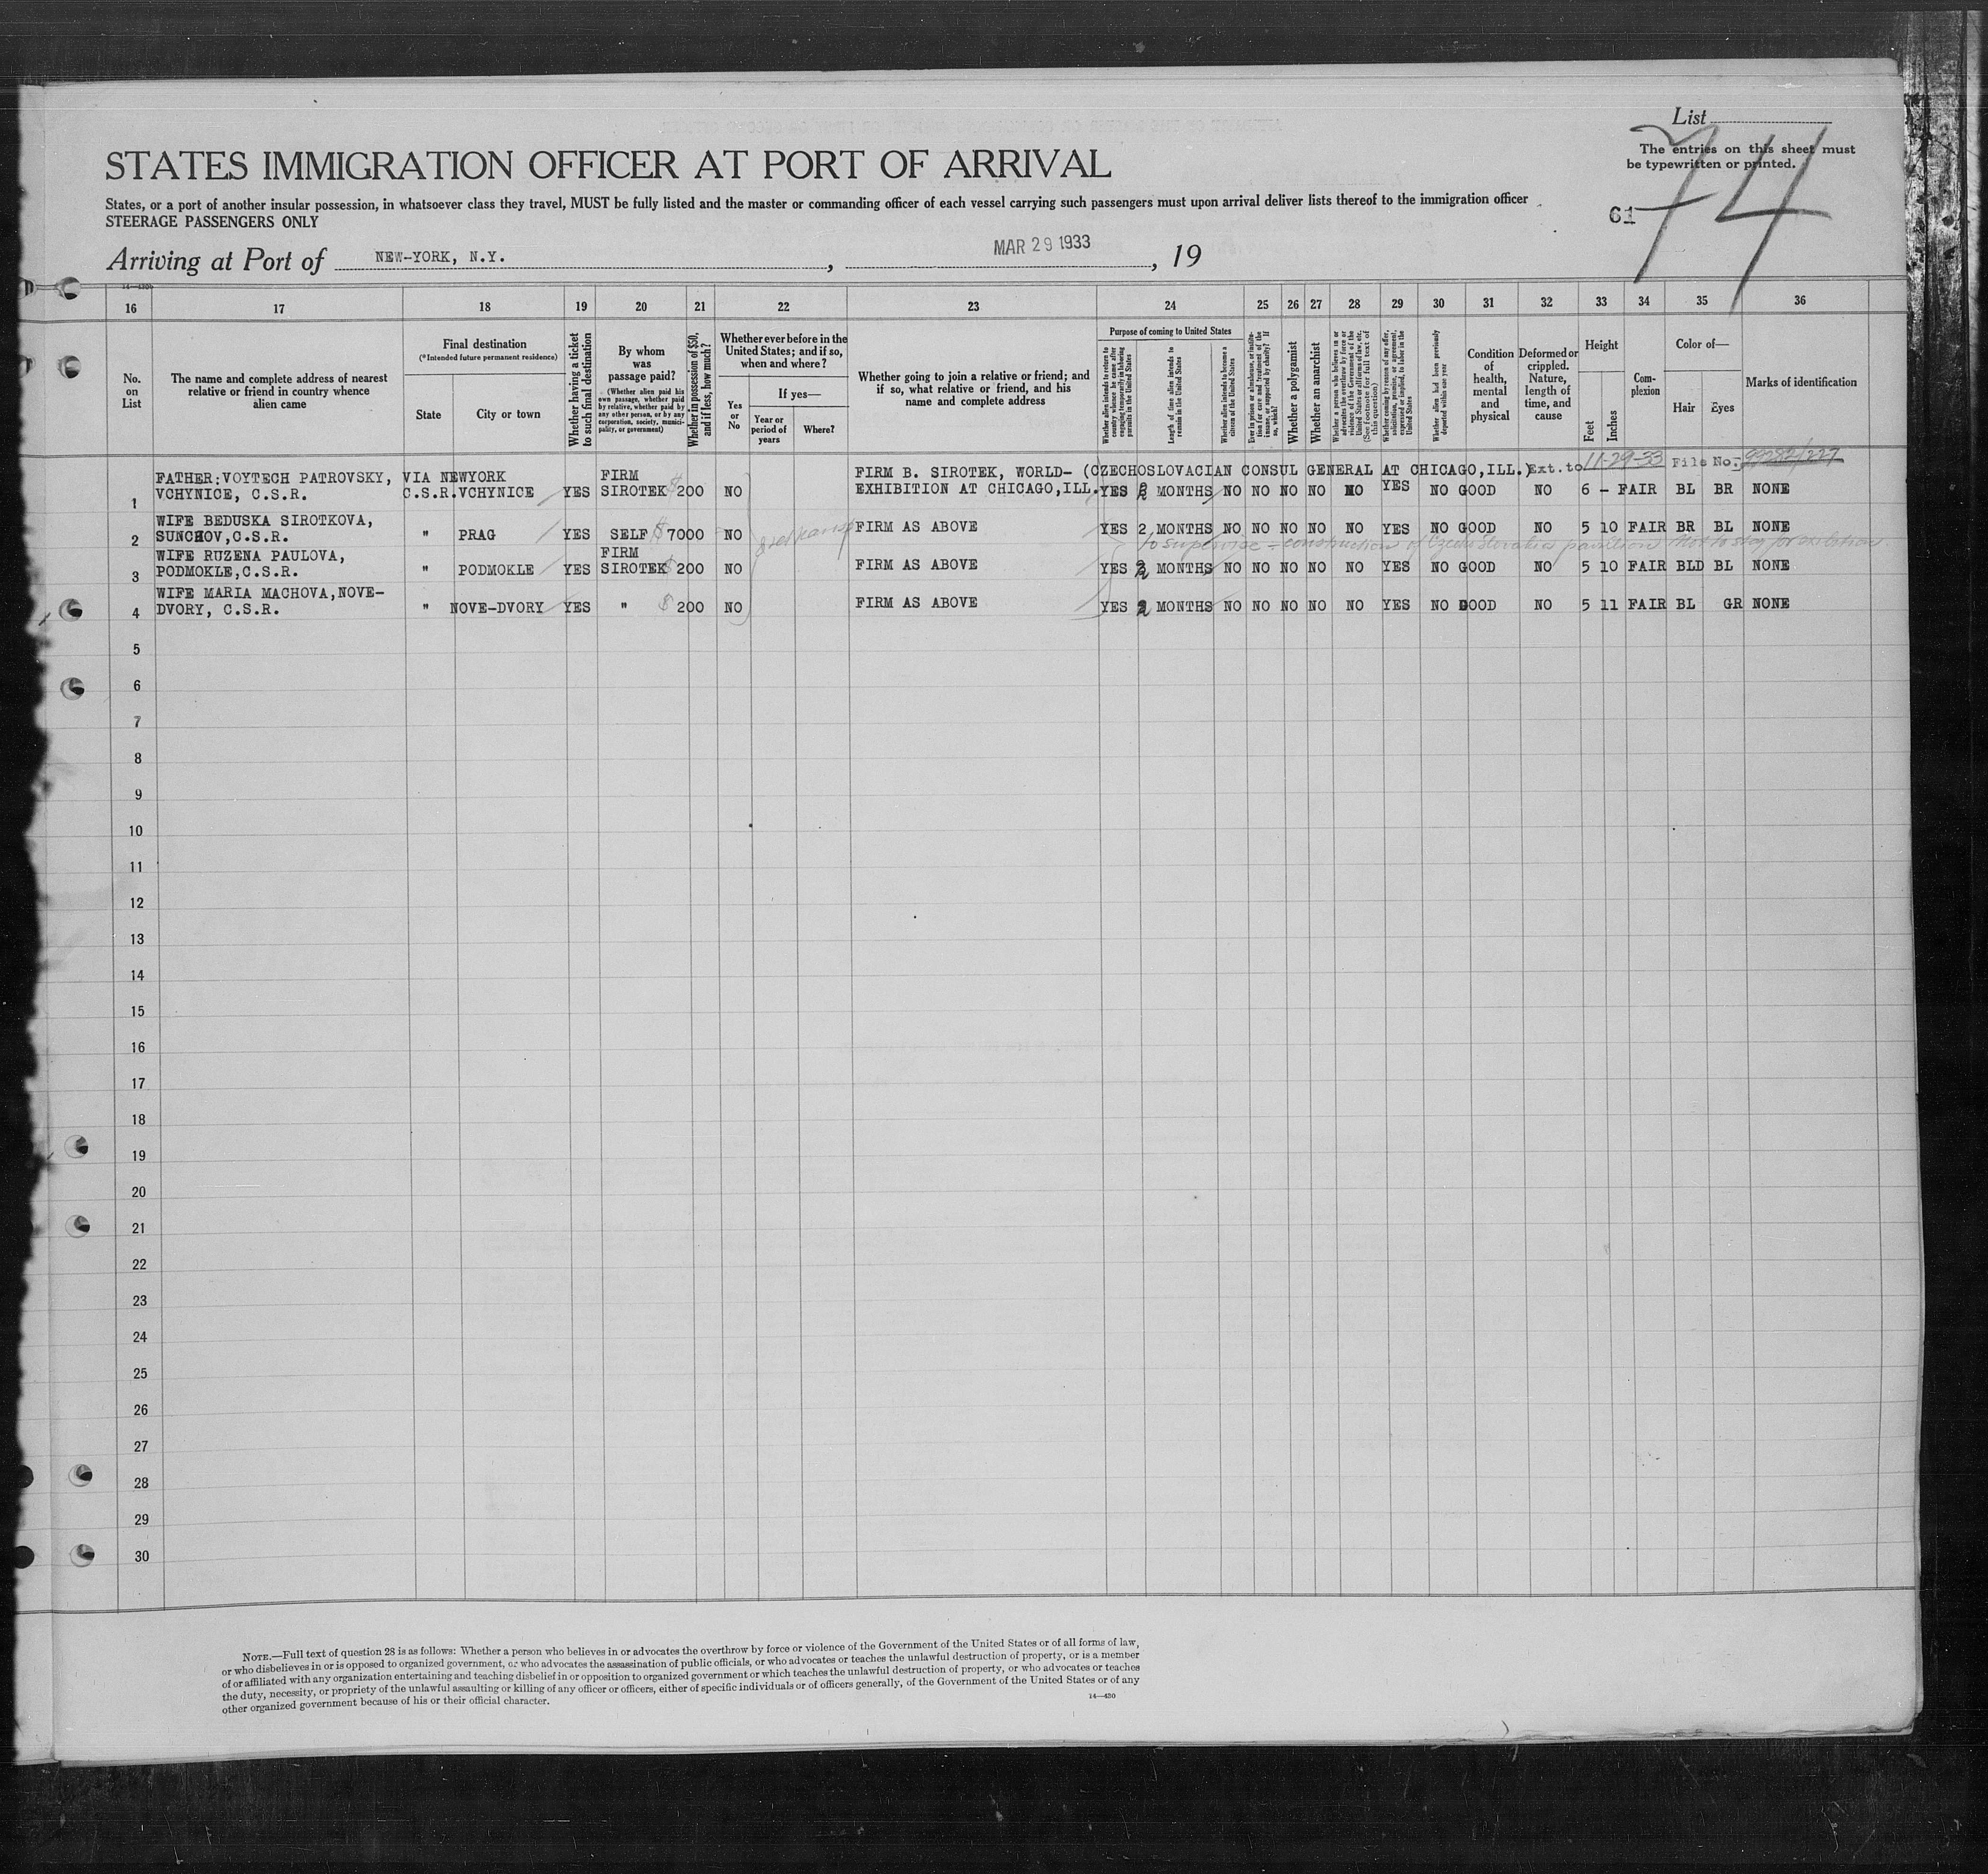 List
74
The entries on this sheet must
be typewritten or printed.
61
STATES IMMIGRATION OFFICER AT PORT OF ARRIVAL
States, or a port of another insular possession, in whatsoever class they travel, MUST be fully listed and the master or commanding officer of each vessel carrying such passengers must upon arrival deliver lists thereof to the immigration officer
STEERAGE PASSENGERS ONLY
Arriving at Port of NEW-YORK, N.Y. , MAR 29 1933 , 19
14—430
16 17 18 19 20 21 22 23 24 25 26 27 28 29 30 31 32 33 34 35 36
No.
on
List
The name and complete address of nearest
relative or friend in country whence
alien came
Final destination
(*Intended future permanent residence)
State
City or town
Whether having a ticket
to such final destination
By whom
was
passage paid?
(Whether alien paid his
own passage, whether paid
by relative, whether paid by
any other person, or by any
corporation, society, munici-
pality, or government)
Whether in possession of $50,
and if less, how much?
Whether ever before in the
United States; and if so,
when and where?
Yes
or
No
If yes—
Year or
period of
years
Where?
Whether going to join a relative or friend; and
if so, what relative or friend, and his
name and complete address
Purpose of coming to United States
Whether alien intends to return to
country whence he came after
engaging temporarily in laboring
pursuits in the United States
Length of time alien intends to
remain in the United States
Whether alien intends to become a
citizen of the United States
Ever in prison or almshouse, or institu-
tion for care and treatment of the
insane, or supported by charity? If
so, which?
Whether a polygamist
Whether an anarchist
Whether a person who believes in or
advocates the overthrow by force or
violence of the Government of the
United States or all forms of law, etc.
(See footnote for full text of
this question)
Whether coming by reason of any offer,
solicitation, promise, or agreement,
expressed or implied, to labor in the
United States
Whether alien had been previously
deported within one year
Condition
of
health,
mental
and
physical
Deformed or
crippled.
Nature,
length of
time, and
cause
Height
Feet
Inches
Com-
plexion
Color of—
Hair
Eyes
Marks of identification
FATHER:VOYTECH PATROVSKY, VIA NEWYORK FIRM FIRM B. SIROTEK, WORLD- (CZECHOSLOVACIAN CONSUL GENERAL AT CHICAGO,ILL.) Ext. to 11-29-33 File No. 99282/227
1 VCHYNICE, C.S.R. C.S.R. VCHYNICE YES SIROTEK $ 200 NO EXHIBITION AT CHICAGO,ILL. YES 2 MONTHS NO NO NO NO NO YES NO GOOD NO 6 - FAIR BL BR NONE
WIFE BEDUSKA SIROTKOVA,
2 SUNCHOV,C.S.R. " PRAG YES SELF $ 7000 NO FIRM AS ABOVE YES 2 MONTHS NO NO NO NO NO YES NO GOOD NO 5 10 FAIR BR BL NONE
to supervise construction of Czecho Slovakia pavilion Not to stay for exhibition
WIFE RUZENA PAULOVA, FIRM
3 PODMOKLE,C.S.R. " PODMOKLE YES SIROTEK $ 200 NO FIRM AS ABOVE YES 2 MONTHS NO NO NO NO NO YES NO GOOD NO 5 10 FAIR BLD BL NONE
WIFE MARIA MACHOVA,NOVE-
4 DVORY, C.S.R. " NOVE-DVORY YES " $ 200 NO FIRM AS ABOVE YES 2 MONTHS NO NO NO NO NO YES NO GOOD NO 5 11 FAIR BL GR NONE
5
6
7
8
9
10
11
12
13
14
15
16
17
18
19
20
21
22
23
24
25
26
27
28
29
30
NOTE.—Full text of question 28 is as follows: Whether a person who believes in or advocates the overthrow by force or violence of the Government of the United States or of all forms of law,
or who disbelieves in or is opposed to organized government, or who advocates the assassination of public officials, or who advocates or teaches the unlawful destruction of property, or is a member
of or affiliated with any organization entertaining and teaching disbelief in or opposition to organized government or which teaches the unlawful destruction of property, or who advocates or teaches
the duty, necessity, or propriety of the unlawful assaulting or killing of any officer or officers, either of specific individuals or of officers generally, of the Government of the United States or of any
other organized government because of his or their official character.
14—430